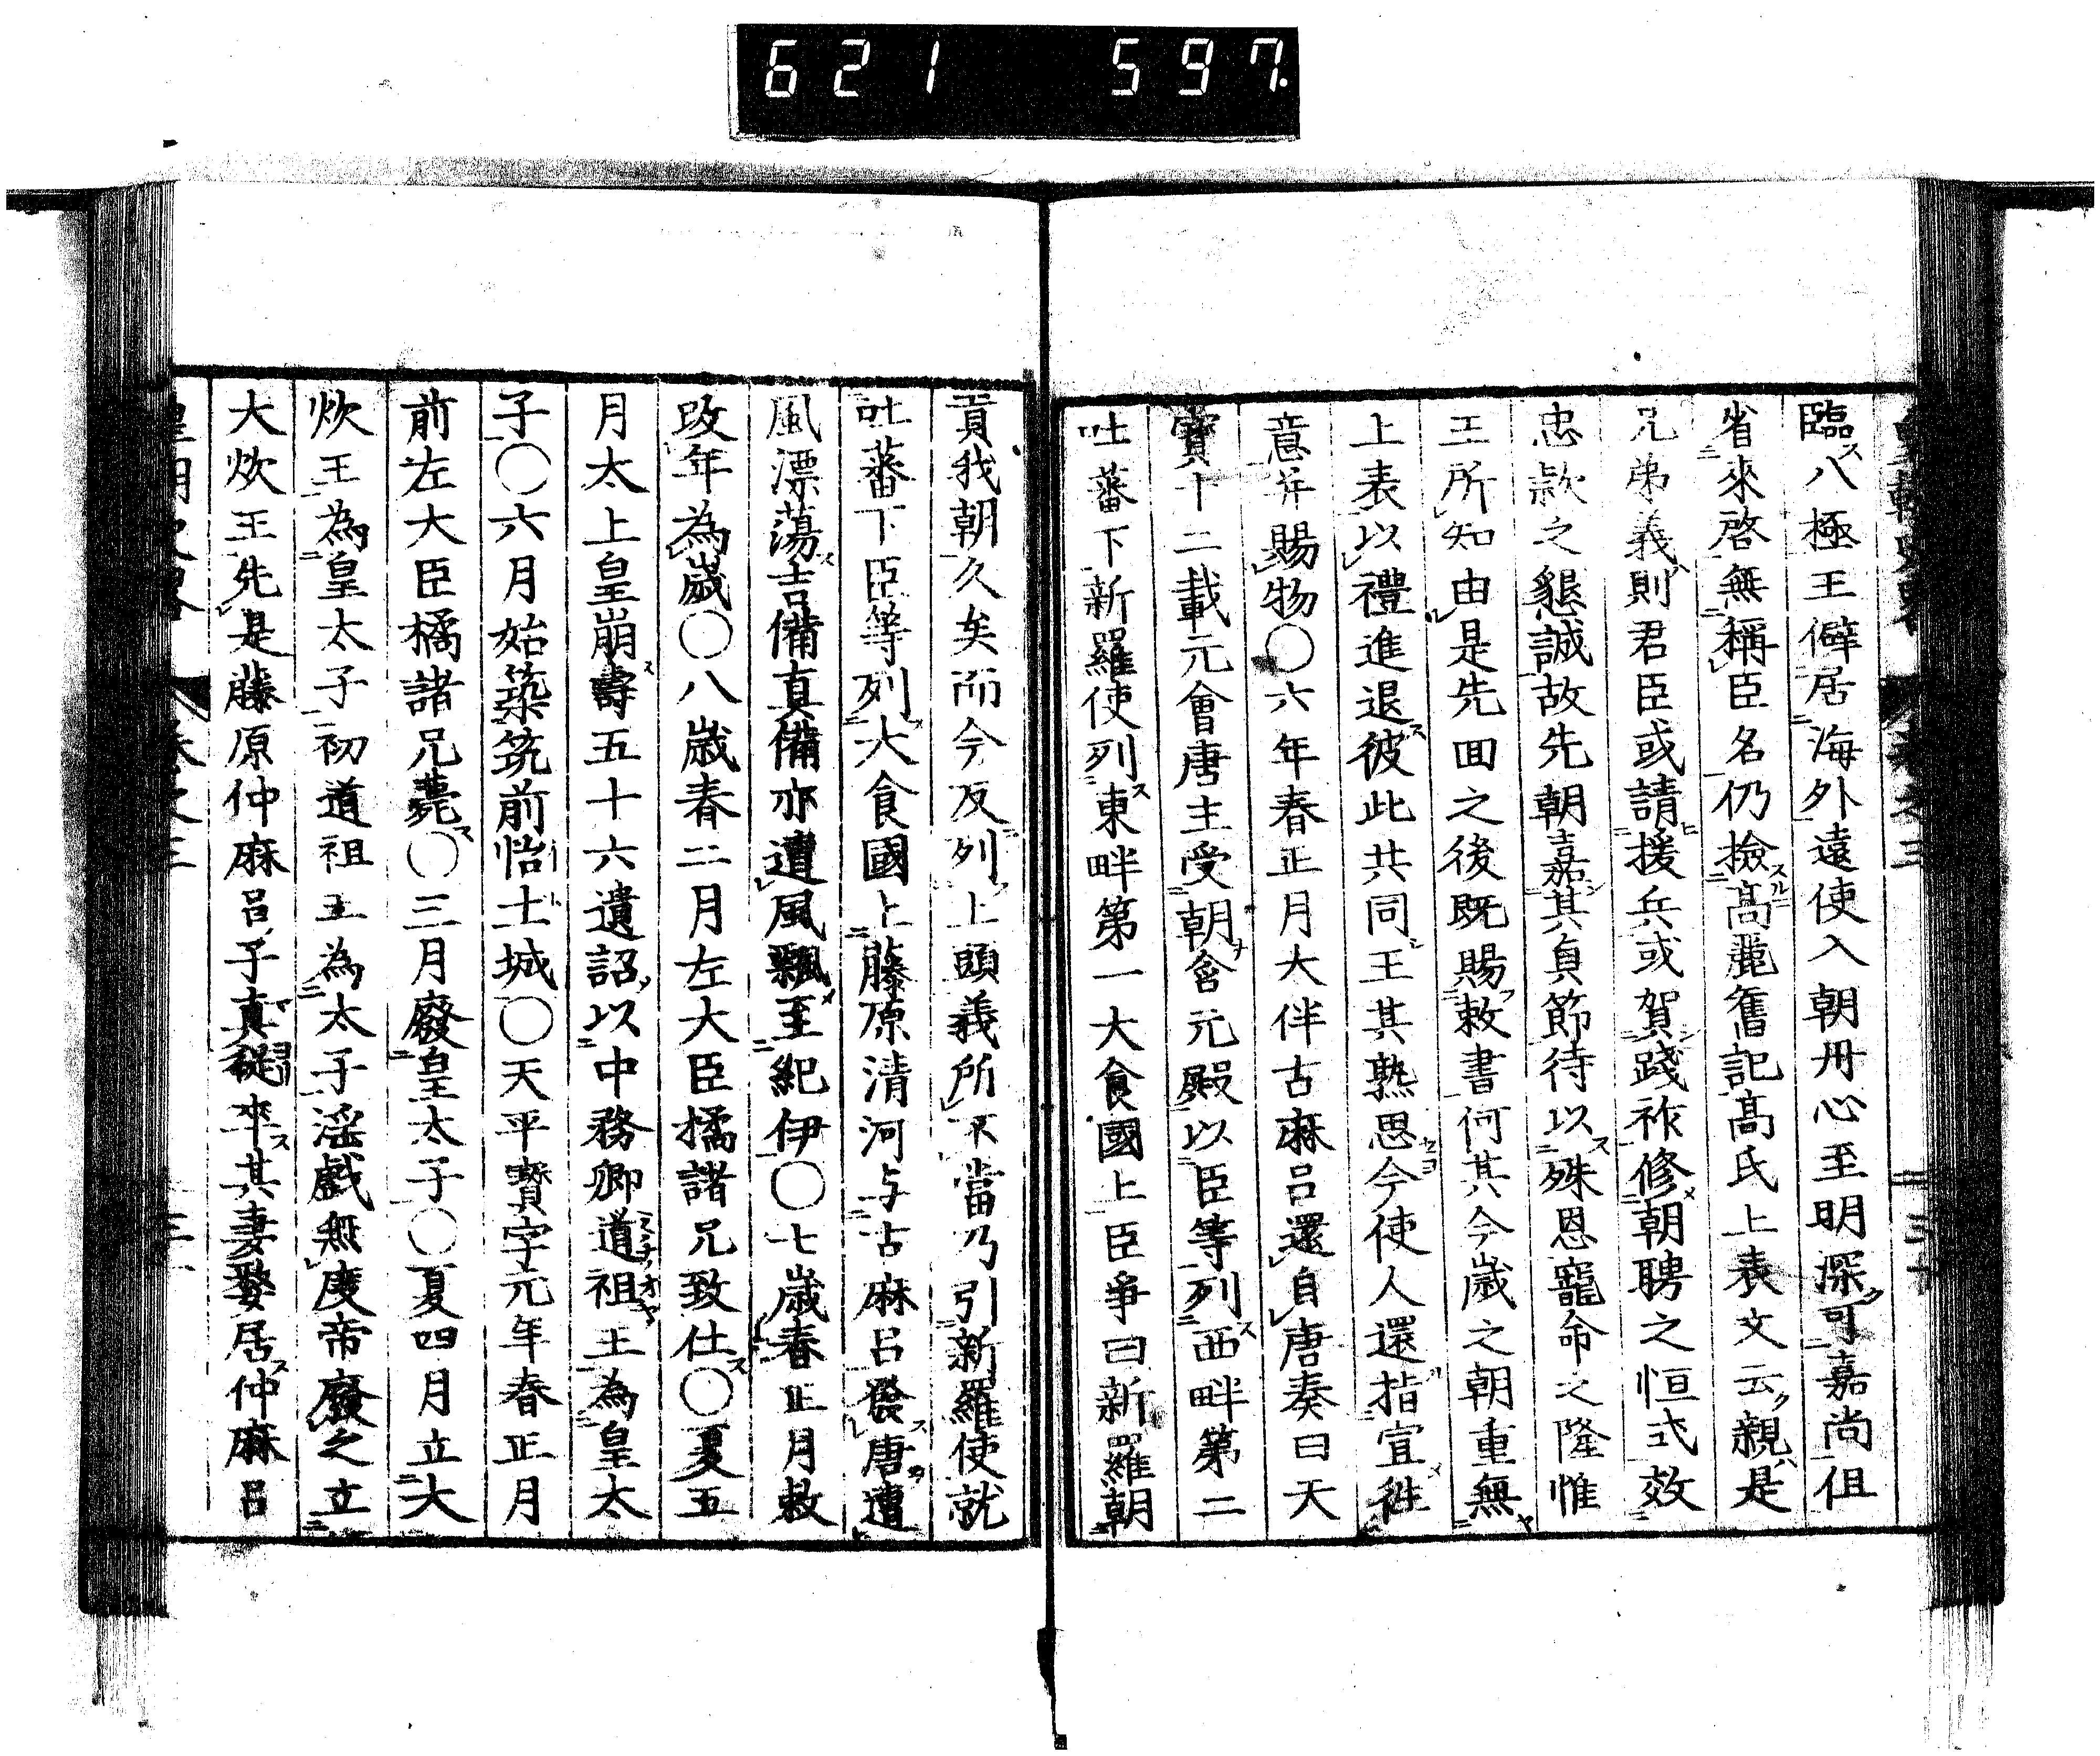 621 597
臨八極王僻居海外遠使入朝丹心至明深可嘉尚但
省來啓無稱臣名仍撿髙麗舊記髙氏上表文云親是
兄弟義則君臣或請援兵或賀踐祚修朝聘之恒式效
忠款之懇誠故先朝嘉其貞節待以殊恩寵命之隆惟
王所知由是先囬之後既賜敕書何其今歲之朝重無
上表以禮進退彼此共同王其熟思今使人還指宣徃
意并賜物〇六年春正月大伴古麻呂還自唐奏曰天
寶十二載元會唐主受朝含元殿以臣等列西畔第二
吐蕃下新羅使列東畔第一大食國上臣爭曰新羅朝
貢我朝久矣而今反列上頭義所不當乃引新羅使就
吐蕃下臣等列大食國上藤原清河与古麻呂發唐遭
風漂蕩吉備真備亦遭風飄至紀伊〇七歲春正月敕
改年為歲〇八歲春二月左大臣橘諸兄致仕〇夏五
月太上皇崩壽五十六遺詔以中務卿道祖王為皇太
子〇六月始築筑前怡土城〇天平寶字元年春正月
前左大臣橘諸兄薨〇三月廢皇太子〇夏四月立大
炊王為皇太子初道祖王為太子淫戲無度帝廢之立
大炊王先是藤原仲麻呂子真從卒其妻嫠居仲麻呂